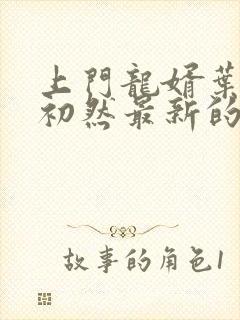 上門龍婿葉
初然最新的
故事的角色1